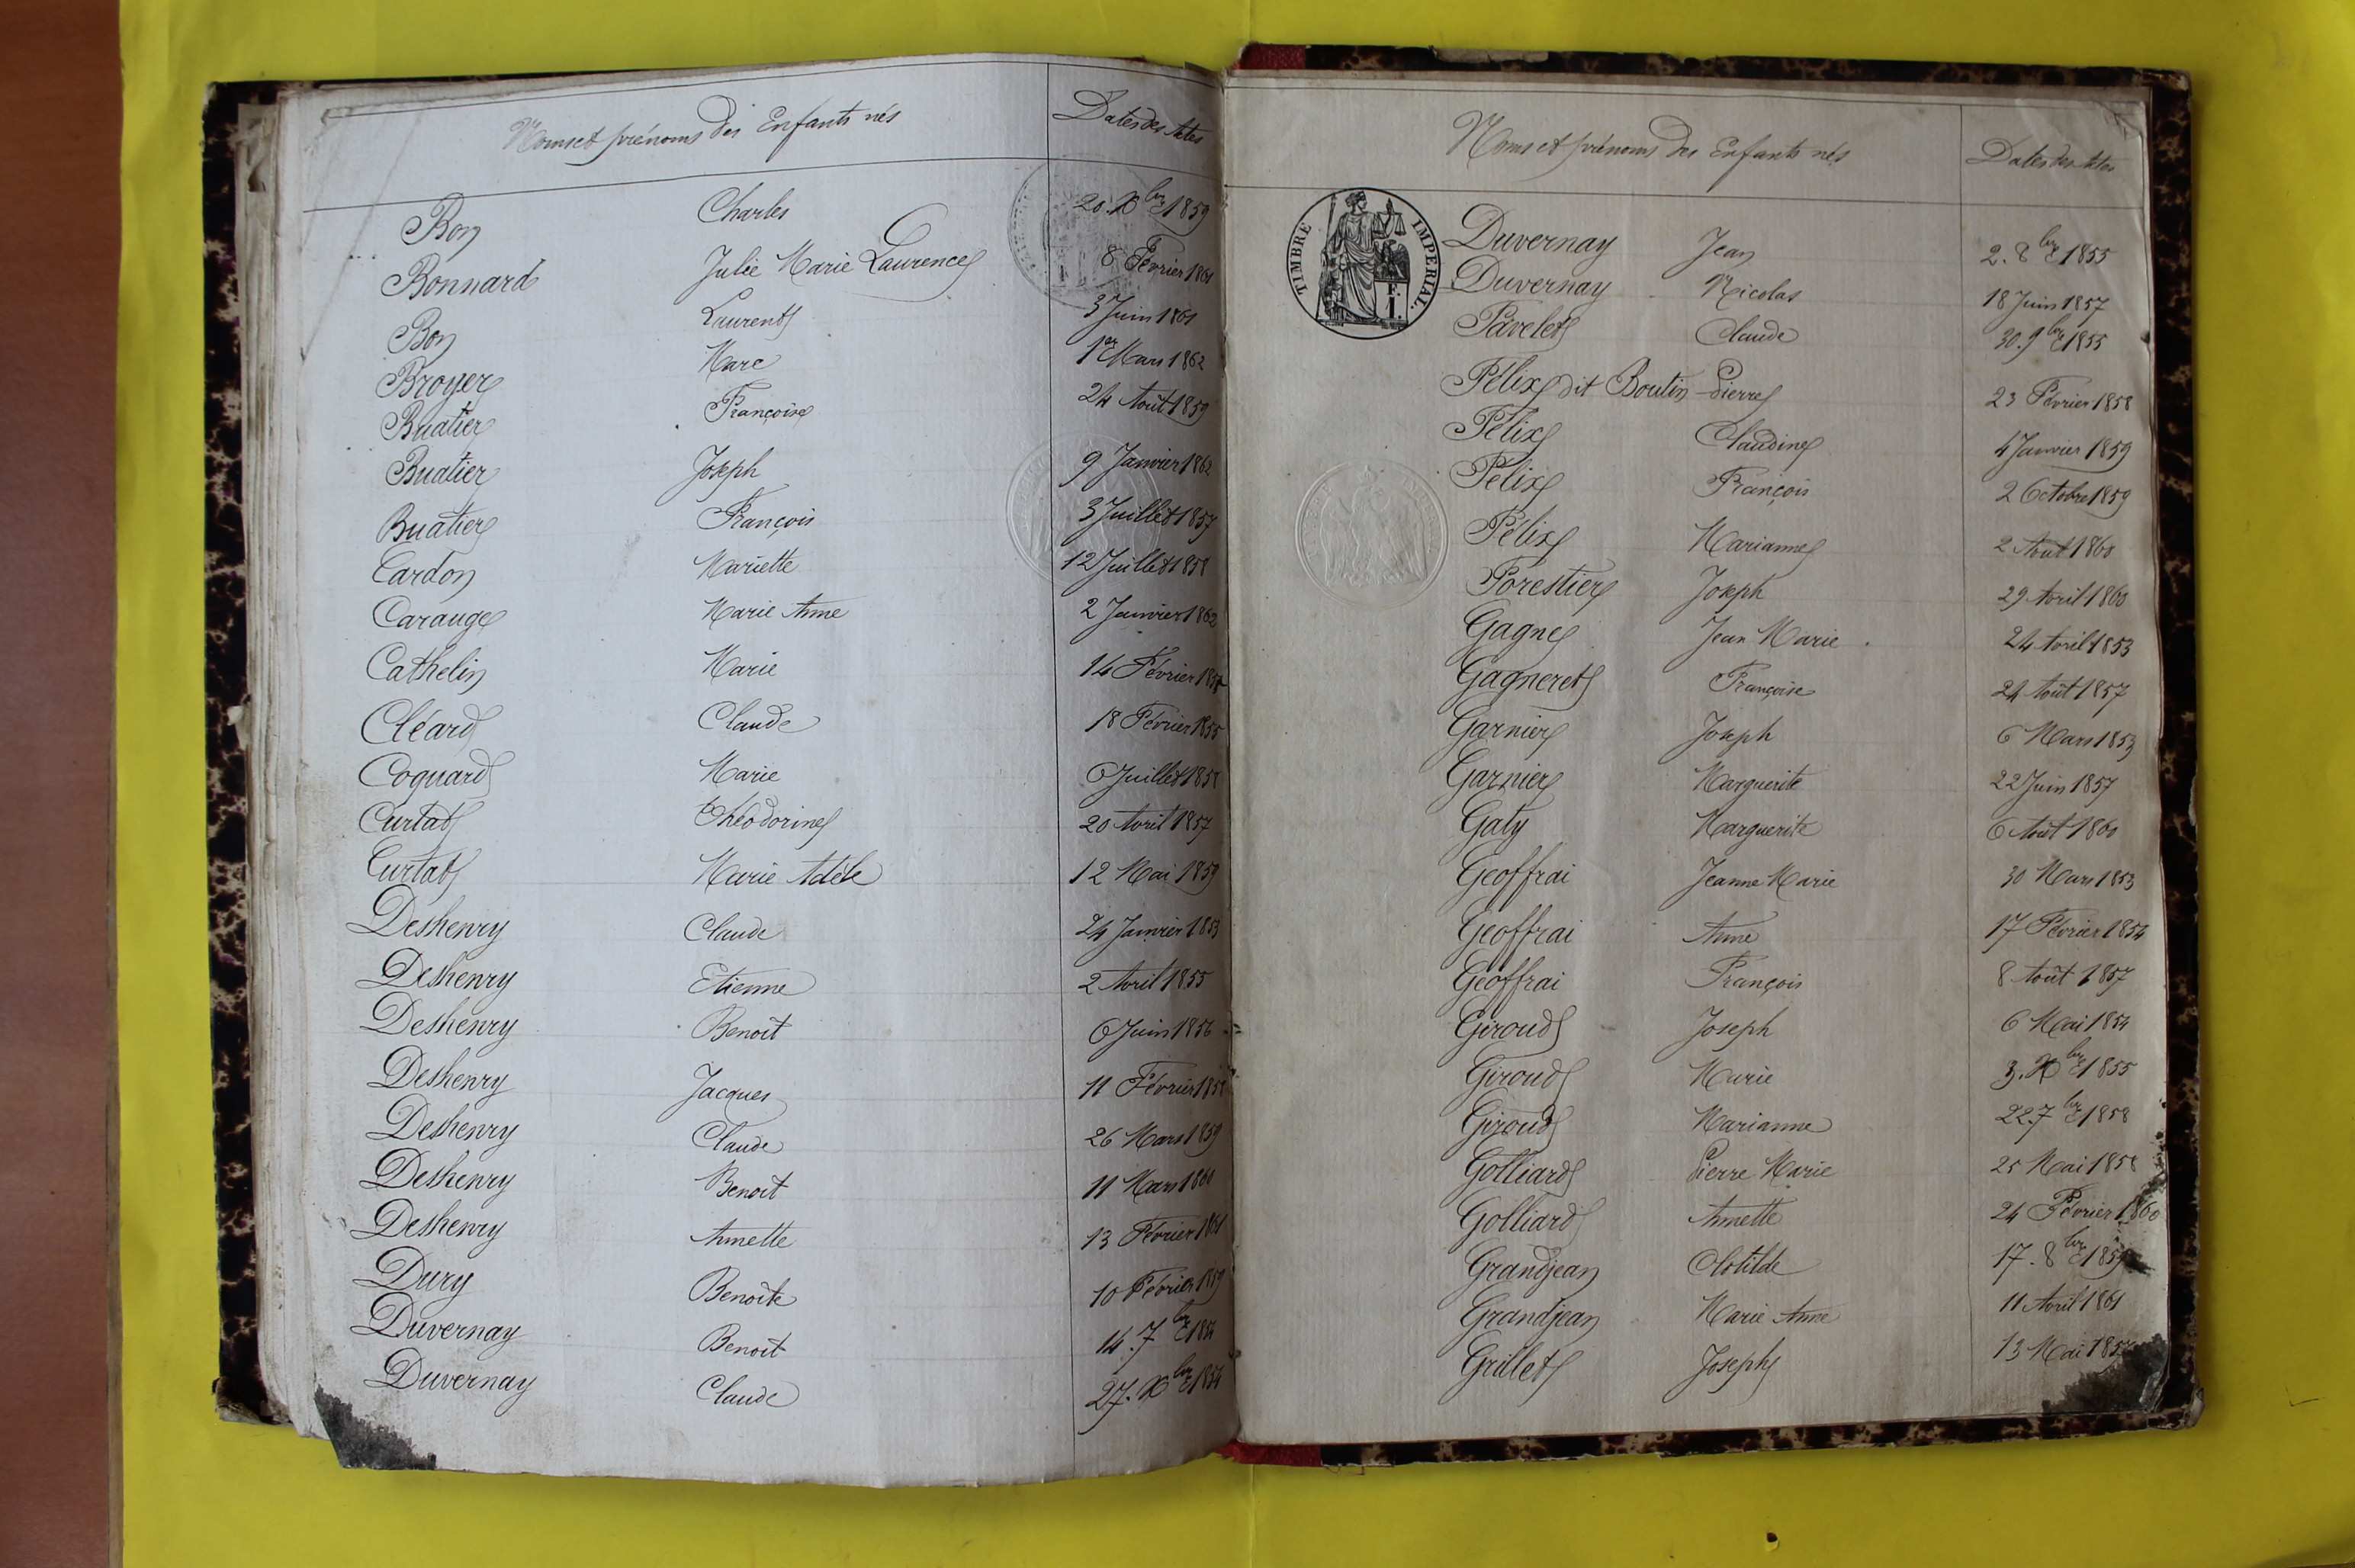 Noms et prénoms des Enfants nés Dates des Actes
Bon Charles 20. Xbre 1859
Bonnard Julie Marie Laurence 8 Février 1861
Bon Laurent 3 Juin 1861
Broyer Marc 1er Mars 1862
Buatier Françoise 24 Août 1859
Buatier Joseph 9 Janvier 1862
Buatier François 3 Juillet 1857
Cardon Mariette 12 Juillet 1858
Carauge Marie Anne 2 Janvier 1862
Cathelin Marie 14 Février
Cléard Claude 18 Février 1855
Coquard Marie 6 Juillet 1858
Curtat Théodorine 20 Avril 1857
Curtat Marie Adèle 12 Mai 1859
Deshenry Claude 24 Janvier 1853
Deshenry Etienne 2 Avril 1855
Deshenry Benoit 6 Juin 1856
Deshenry Jacques 11 Février
Deshenry Claude 26 Mars 1859
Deshenry Benoit 11 Mars 1860
Deshenry Annette 13 Février 1861
Dury Benoîte 10 Février 1859
Duvernay Benoit 14. 7bre 1854
Duvernay Claude 27. Xbre 1854
Noms et prénoms des Enfants nés Dates des Actes
TIMBRE IMPERIAL.
F. 1.
Duvernay Jean 2. 8bre 1855
Duvernay Nicolas 18 Juin 1857
Favelet Claude 30. 9bre 1855
Félix dit Boutin Pierre 23 Février 1858
Félix Claudine 4 Janvier 1859
Félix François 2 Octobre 1859
Félix Marianne 2 Août 1860
Forestier Joseph 29 Avril 1860
Gagne Jean Marie 24 Avril 1853
Gagneret Françoise 24 Août 1857
Garnier Joseph 6 Mars 1853
Garnier Marguerite 22 Juin 1857
Gaty Marguerite 6 Août 1860
Geoffrai Jeanne Marie 30 Mars 1853
Geoffrai Anne 17 Février 1854
Geoffrai François 8 Août 1857
Giroud Joseph 6 Mai 1854
Giroud Marie 3. Xbre 1855
Giroud Marianne 22. 7bre 1858
Golliard Pierre Marie 25 Mai 1858
Golliard Annette 24 Février 1860
Grandjean Clotilde 17. 8bre 1859
Grandjean Marie Anne 11 Avril 1861
Grillet Joseph 13 Mai